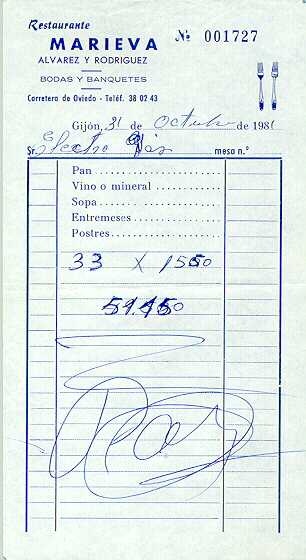 Restaurante
MARIEVA
ALVAREZ Y RODRIGUEZ
BODAS Y BANQUETES
Carretera de Oviedo - Teléf. 38 02 43
Nº 001727
Gijón, 31 de Octubre de 1981
Sr. Electro mesa n.º
Pan
Vino o mineral
Sopa
Entremeses
Postres
33 X 1550
51.150